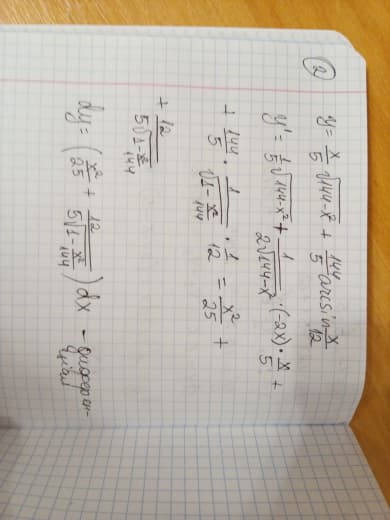 2
y = x/5 √(144-x²) + 144/5 arcsin x/12
y' = 1/5 √(144-x²) + 1/(2√(144-x²)) · (-2x) · x/5 +
+ 144/5 · 1/√(1 - x²/144) · 1/12 = x²/25 +
+ 12/(5√(1-x²/144))
dy = (x²/25 + 12/(5√(1-x²/144))) dx - диферен-
ціал